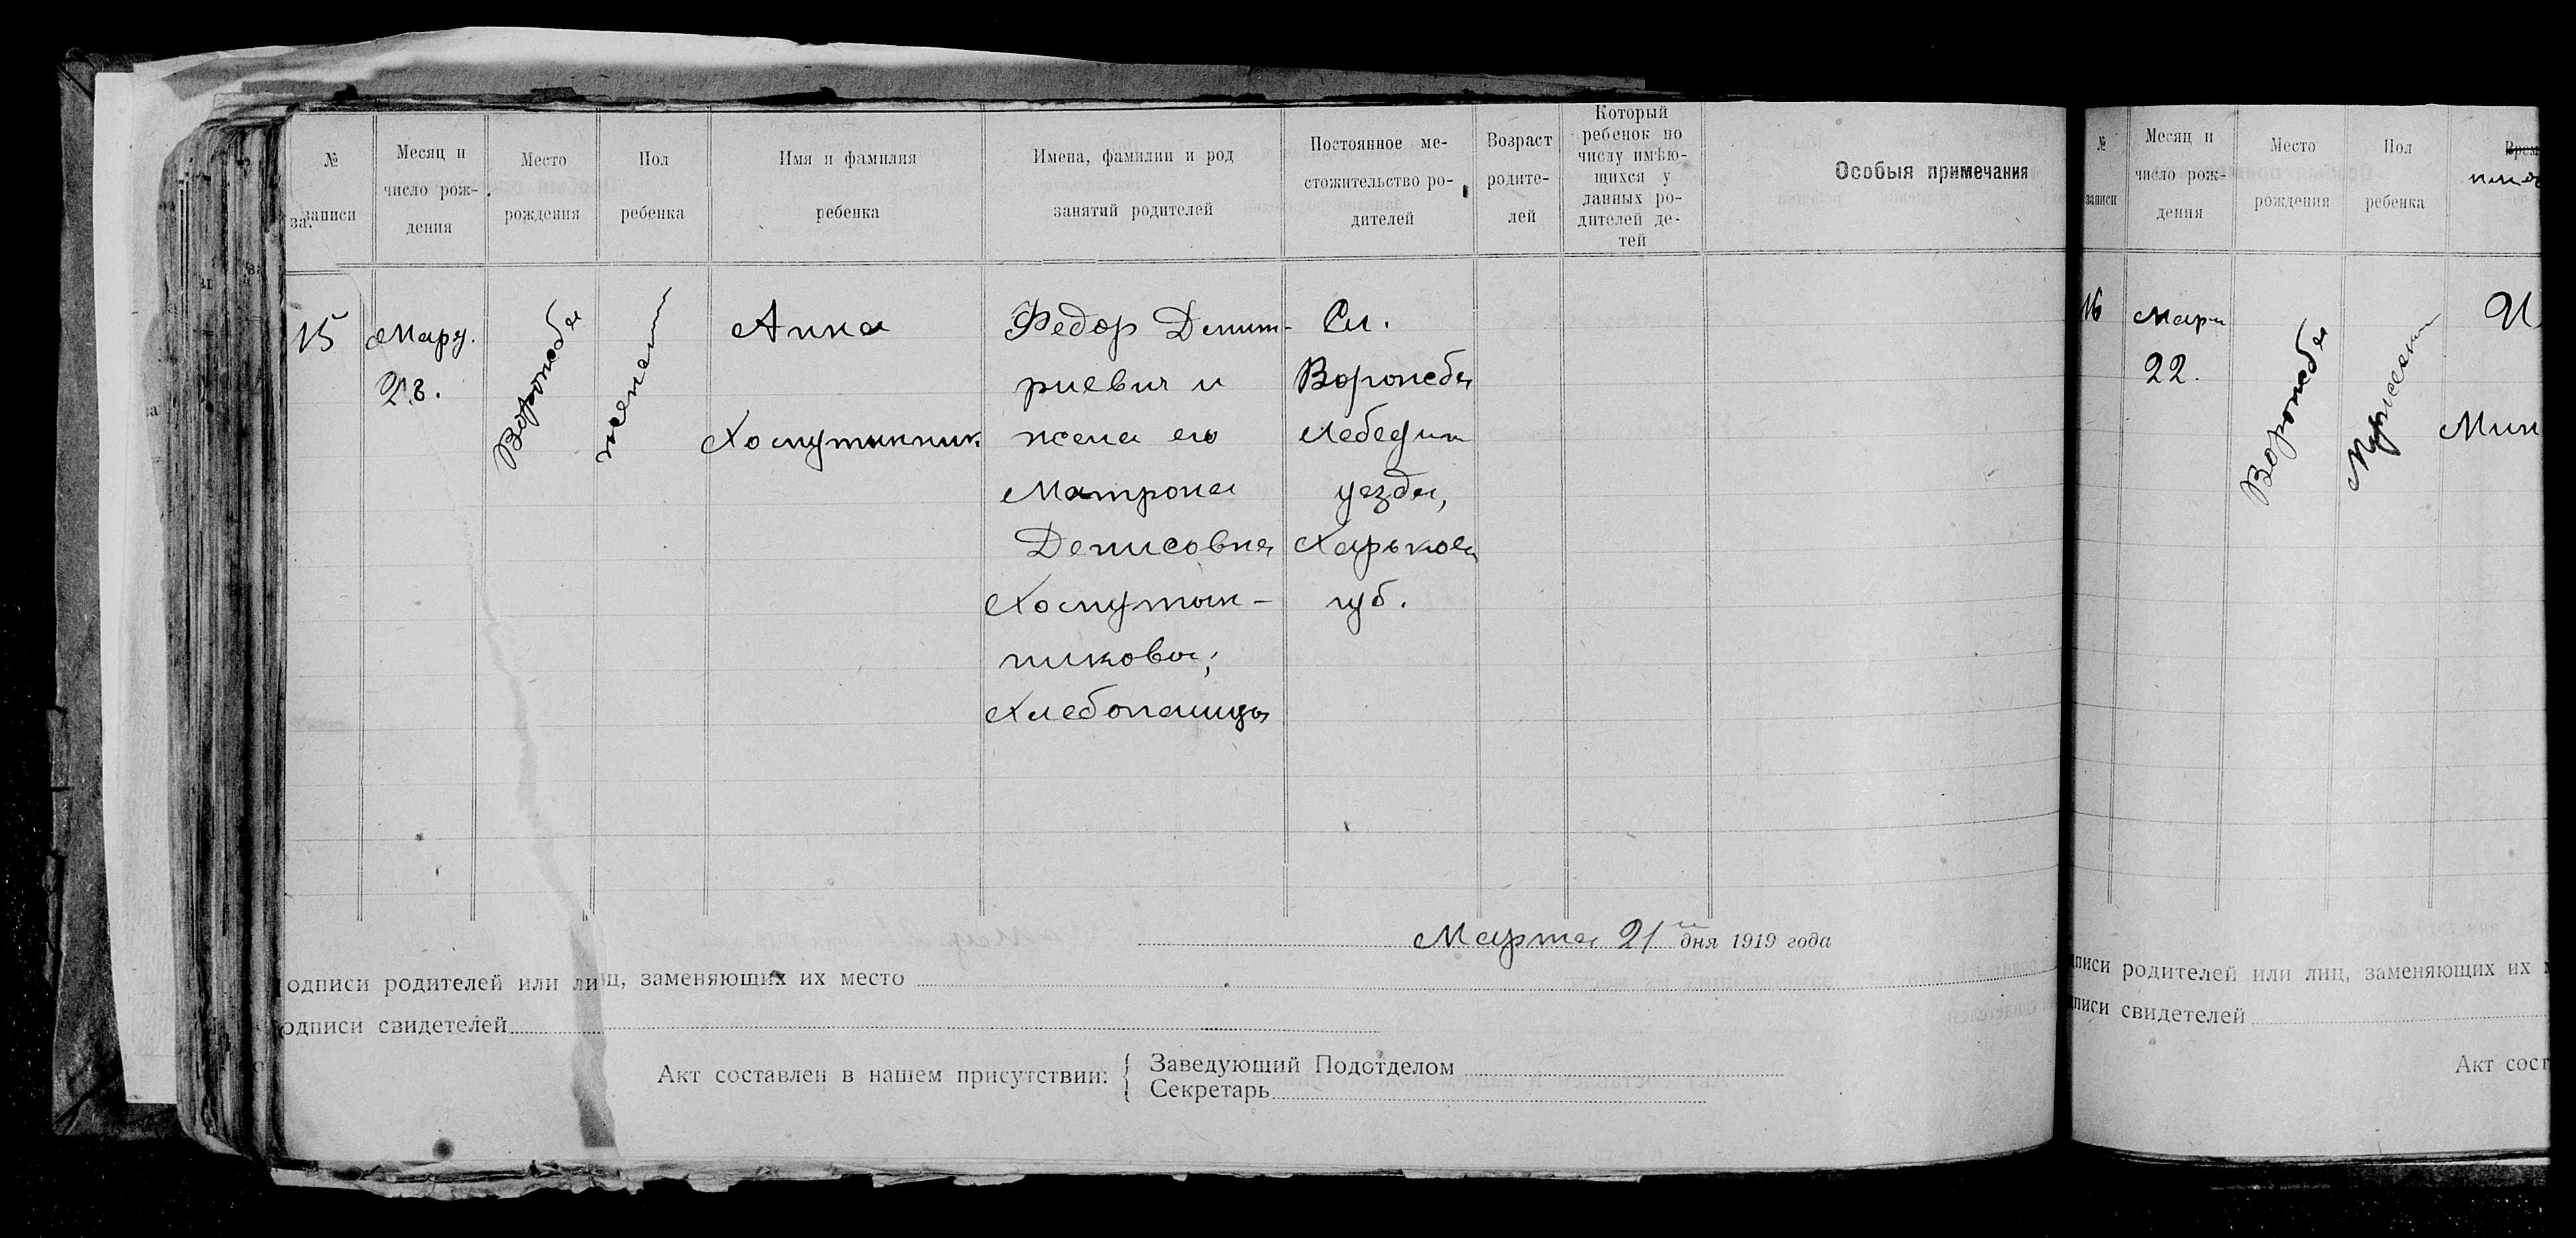 №
записи
Месяц и
число рож-
дения
Место
рождения
Пол
ребенка
Имя и фамилия
ребенка
Имена, фамилии и род
занятий родителей
Постоянное ме-
стожительство ро-
дителей
Возраст
родите-
лей
Который
ребенок по
числу имѣю-
щихся у
данных ро-
дителей де-
тей
Особыя примечания
15
Мар
Воронсба
женский
Анна
Хомутинник
Федор Димит-
риевич и
жена его
Матрона
Денисовна
Хомутин-
никова;
Хлебопашцы
Сл.
Воронсба
Лебедин
уезда,
Харьков
губ.
Марта 21 дня 1919 года
одписи родителей или лиц, заменяющих их место
одписи свидетелей
Акт составлен в нашем присутствии:
Заведующий Подотделом
Секретарь
№
записи
Месяц и
число рож-
дения
Место
рождения
Пол
ребенка
16
Мар
22.
Воронсба
писи родителей или лиц, заменяющих их
писи свидетелей
Акт сост